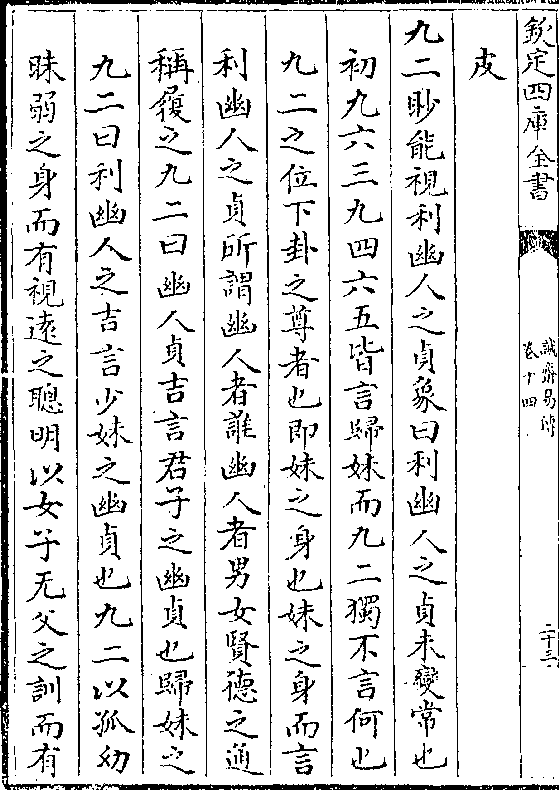 欽定四庫全書
誠齋易傳
卷十四
二十三
皮
九二眇能視利幽人之貞象曰利幽人之貞未變常也
初九六三九四六五皆言歸妹而九二獨不言何也
九二之位下卦之尊者也即妹之身也妹之身而言
利幽人之貞所謂幽人者誰幽人者男女賢德之通
稱履之九二曰幽人貞吉言君子之幽貞也歸妹之
九二曰利幽人之吉言少妹之幽貞也九二以孤幼
昧弱之身而有視遠之聰明以女子无父之訓而有